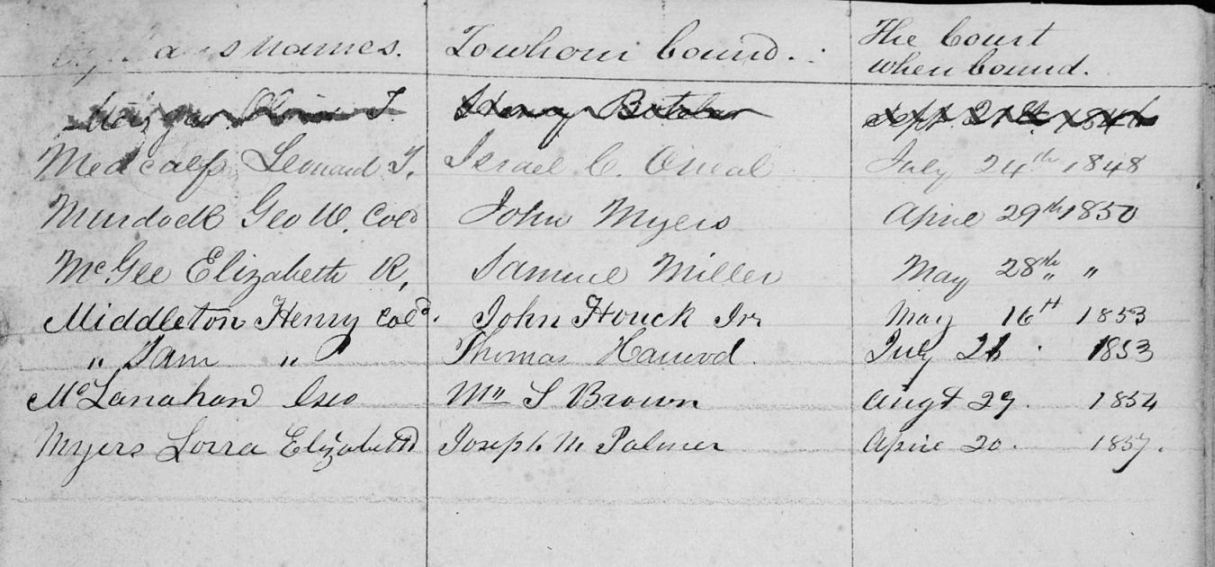 names. To whom bound. The Court
when bound.
Henry Sept. 21st 1846
Medcalf Leonard T. Israel C. Oneal July 24th 1848
Murdock Geo W. Cold John Myers April 29th 1850
McGee Elizabeth R, Samuel Miller May 28th " "
Middleton Henry Cold. John Houck Jr May 16th 1853
" Sam " Thomas Harwod July 26. 1853
McLanahan Geo Wm S Brown Augt 29. 1854
Myers Lorra Elizabeth Joseph M Palmer April 20. 1857.